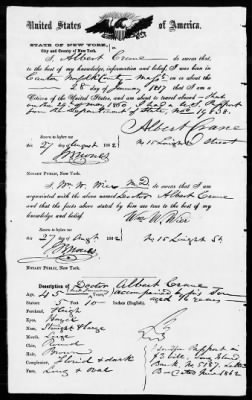 United States of America.
STATE OF NEW YORK,
City and County of New York.
I, Albert Crane do swear that
to the best of my knowledge, information and belief I was born in
Canton Norfolk County Mass on or about the
28 day of January 1817 that I am a
Citizen of the United States, and am about to travel abroad – that
on the of Nov 1860 I had a Passport
from the Department of State, No 19638.
Albert Crane
No 15 Leight Street
Sworn to before me
this 27 August 1862
NOTARY PUBLIC, New York.
I, Wm W. Wier M.D. do swear that I am
acquainted with the above named Doctor Albert Crane
and that the facts above stated by him are true to the best of my
knowledge and belief
Wm W. Wier
No 15 Leight St
Sworn to before me
this 27 Augt 1862
NOTARY PUBLIC, New York.
Description of Doctor Albert Crane
Age 45
aged 16 years
Stature 5 Feet 10 Inches (English).
Forehead High
Eyes Hazel
Nose Straight & large
Mouth Large
Chin Round
Hair Brown
Complexion Florid & dark
Face Long & oval
$3 bill, Long Island
Bank, No 5187
June 1862